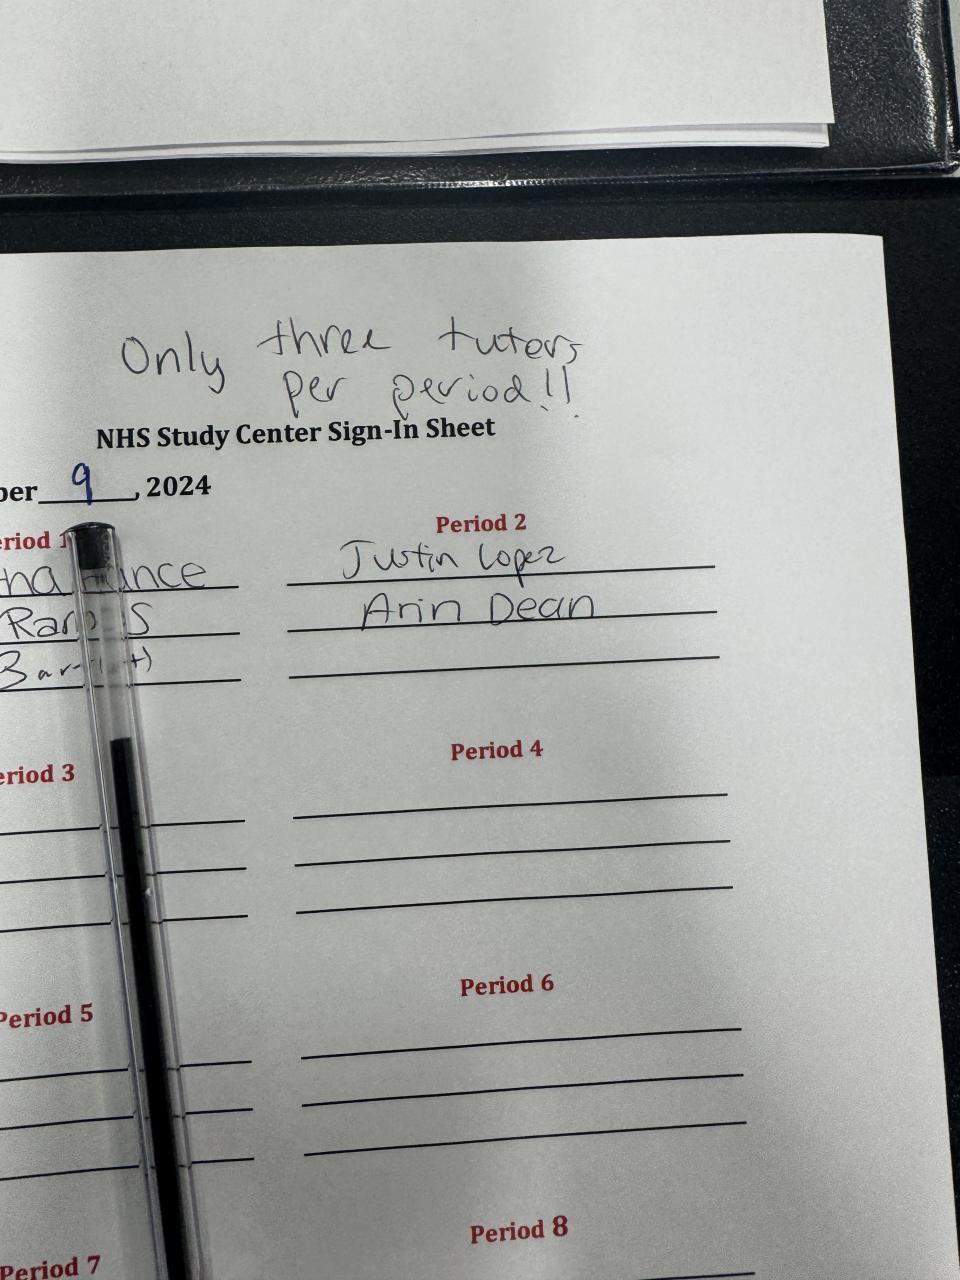 Only three tuters
per period!!
NHS Study Center Sign-In Sheet
ber 9, 2024
eriod 1 Period 2
Justin Lopez
S Arin Dean
eriod 3 Period 4
Period 5 Period 6
Period 7 Period 8